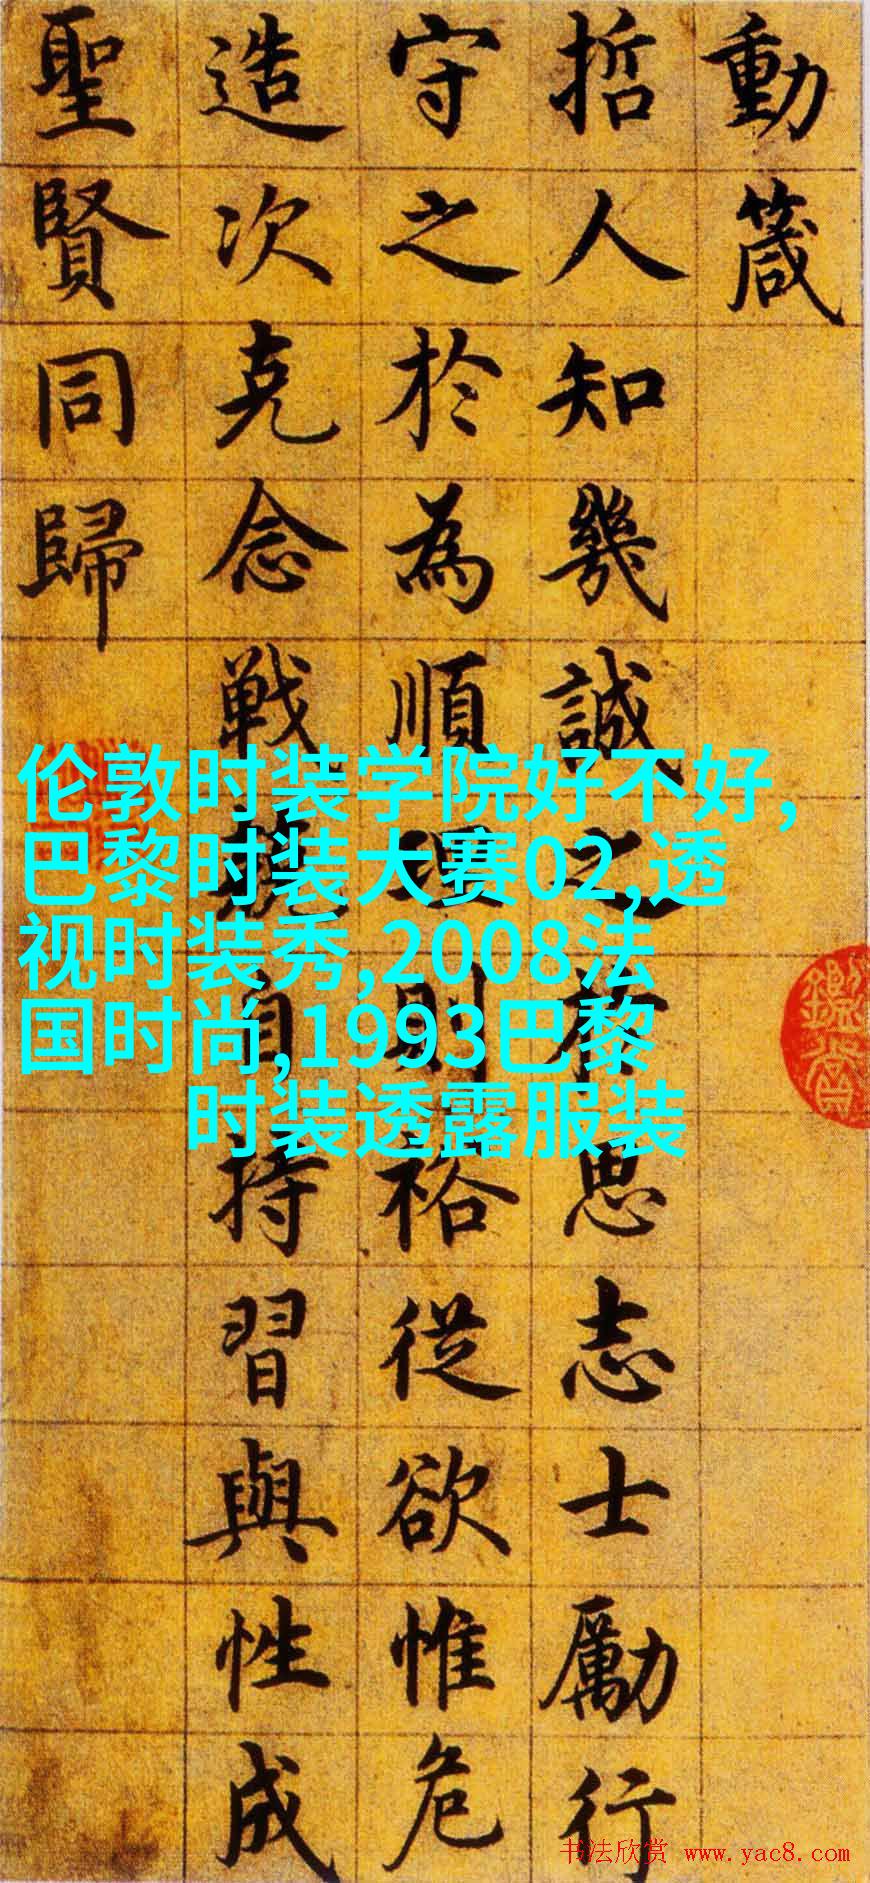 動箴
哲人知幾誠之思志士勵行
守之於為順則裕從欲惟危
造次克念戦自持習與性成
聖賢同歸
伦敦时装学院好不好,
巴黎时装大赛02,透
视时装秀,2008法
国时尚,1993巴黎
时装透露服装
书法欣赏 www.yac8.com